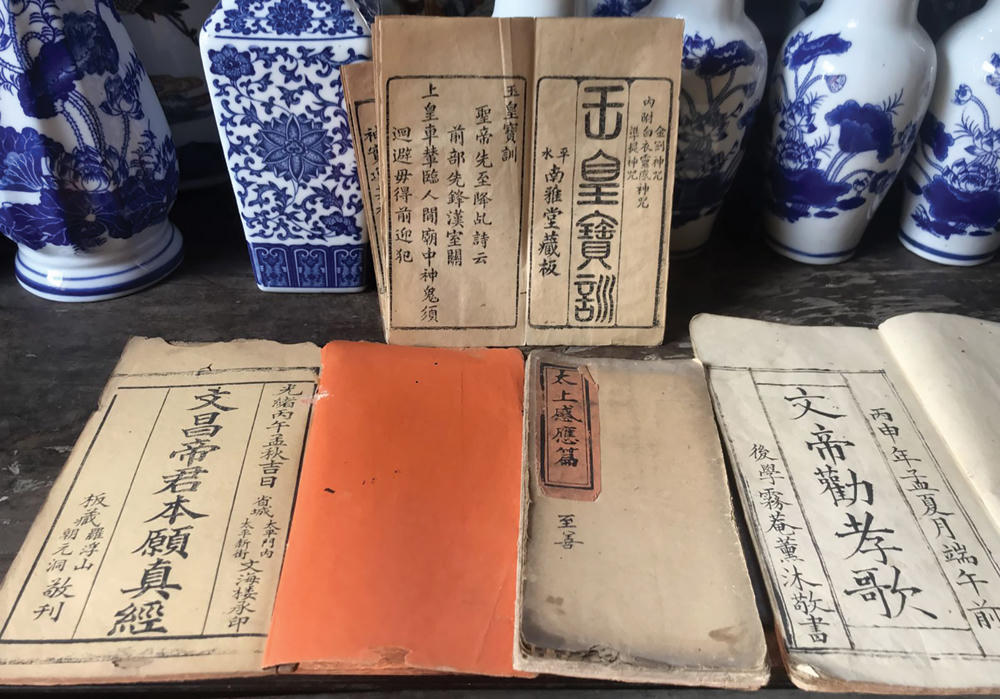 內附白衣靈感神咒
金剛神咒
準提神咒
玉皇寶訓
水平
南雅堂藏板
玉皇寶訓
聖帝先至降此詩云
前部先鋒漢室關
上皇車輦臨人間廟中神鬼須
迴避毋得前迎犯
光緒丙午孟秋吉日
省城
太平門內
太平新街
文海楼承印
文昌帝君本願真經
板藏羅浮山
朝元洞
敬刊
太上感應篇
至善
丙申年孟夏月端午前
文帝勸孝歌
後學霧菴薰沐敬書